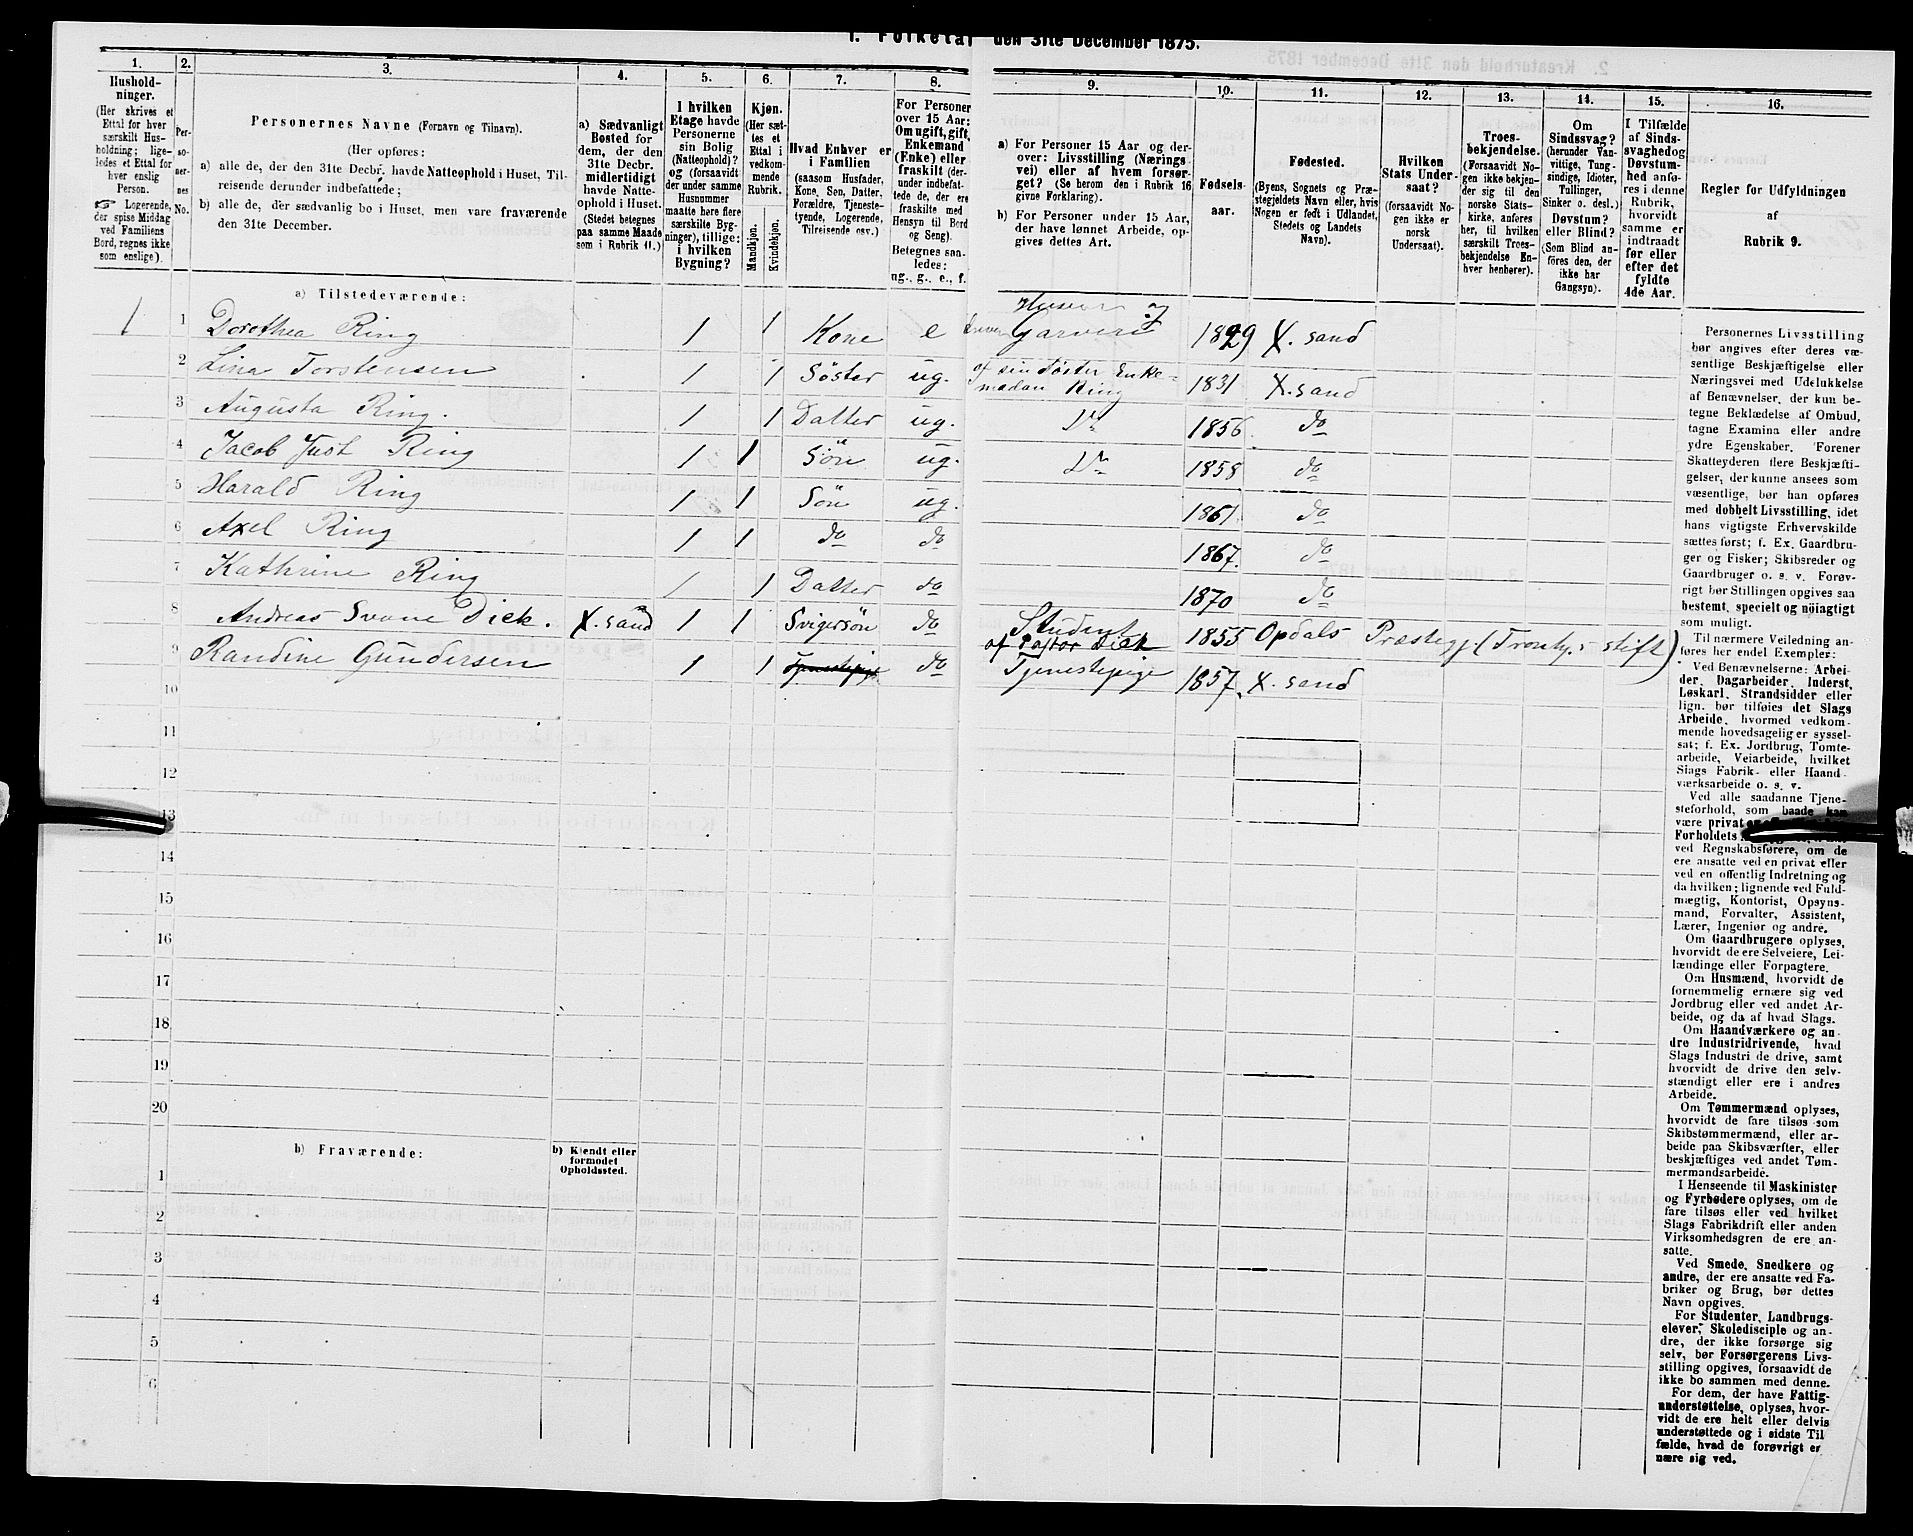 1. Folketal den 31te December 1875.
1. 2. 3. 4. 5. 6. 7. 8. 9. 10. 11. 12. 13. 14. 15. 16.
Hushold-
ninger.
(Her skrives et
Ettal for hver
særskilt Hus-
holdning; lige-
ledes et Ettal for
hver enslig
Person.
☞ Logerende,
der spise Middag
ved Familiens
Bord, regnes ikke
som enslige).
Per-
so-
ner-
nes
No.
Personernes Navne (Fornavn og Tilnavn).
(Her opføres:
a) alle de, der den 31te Decbr. havde Natteophold i Huset, Til-
reisende derunder indbefattede;
b) alle de, der sædvanlig bo i Huset, men vare fraværende
den 31te December.
a) Sædvanligt
Bosted for
dem, der den
31te Decbr.
midlertidigt
havde Natte-
ophold i Huset.
(Stedet betegnes
paa samme Maade
som i Rubrik 11.)
I hvilken
Etage havde
Personerne
sin Bolig
(Natteophold)?
og (forsaavidt
der under samme
Husnummer
maatte høre flere
særskilte Byg-
ninger), tillige:
i hvilken
Bygning?
Kjøn.
(Her sæt-
tes et
Ettal i
vedkom-
mende
Rubrik.
Mandkjøn.
Kvindekjøn.
Hvad Enhver er
i Familien
(saasom Husfader,
Kone, Søn, Datter,
Forældre, Tjeneste-
tyende, Logerende,
Tilreisende osv.)
For Personer
over 15 Aar:
Om ugift, gift,
Enkemand
(Enke) eller
fraskilt (der-
under indbefat-
tede de, der ere
fraskilte med
Hensyn til Bord
og Seng).
Betegnes saa-
ledes:
ug., g., e., f.
a) For Personer 15 Aar og der-
over: Livsstilling (Nærings-
vei) eller af hvem forsør-
get? (Se herom den i Rubrik 16
givne Forklaring).
b) For Personer under 15 Aar,
der have lønnet Arbeide, op-
gives dettes Art.
Fødsels-
aar.
Fødested.
(Byens, Sognets og Præ-
stegjeldets Navn eller, hvis
Nogen er født i Udlandet,
Stedets og Landets
Navn).
Hvilken
Stats Under-
saat?
(forsaavidt No-
gen ikke er
norsk
Undersaat).
Troes-
bekjendelse.
(Forsaavidt No-
gen ikke bekjen-
der sig til den
norske Stats-
kirke, anføres
her, til hvilken
særskilt Troes-
bekjendelse En-
hver henhører).
Om
Sindssvag?
(herunder Van-
vittige, Tung-
sindige, Idioter,
Tullinger,
Sinker o. desl.)
Døvstum?
eller Blind?
(Som Blind an-
føres den, der
ikke har
Gangsyn).
I Tilfælde
af Sinds-
svaghed og
Døvstum-
hed anfø-
res i denne
Rubrik,
hvorvidt
samme er
indtraadt
før eller
efter det
fyldte
4de Aar.
Regler for Udfyldningen
af
Rubrik 9.
a) Tilstedeværende:
1 1 Dorothea Ring 1 1 Kone e driver Huseier & Garveri 1829 X.sand
2 Lina Torstensen 1 1 Søster ug. af sin Søster Enke-madan Ring 1831 X.sand
3 Augusta Ring. 1 1 Datter ug. Do 1856 do
4 Jacob Just Ring 1 1 Søn ug. Do 1858 do
5 Harald Ring 1 1 Søn ug. 1861 do
6 Axel Ring 1 1 do do 1867. do
7 Kathrine Ring 1 1 Datter do 1870 do
8 Andreas Svane Dick. X.sand 1 1 Svigersøn do Student af Pastor Dick 1855 Opdals Præstegj. (Tronhj.s stift)
9 Randine Gundersen 1 1 Tjenestepige do Tjenestepige 1857. X.sand
10
11
12
13
14
15
16
17
18
19
20
b) Fraværende:
b) Kjendt eller
formodet
Opholdssted.
1
2
3
4
5
6
Personernes Livsstilling
bør angives efter deres væ-
sentlige Beskjæftigelse eller
Næringsvei med Udelukkelse
af Benævnelser, der kun be-
tegne Beklædelse af Ombud,
tagne Examina eller andre
ydre Egenskaber. Forener
Skatteyderen flere Beskjæfti-
gelser, der kunne ansees som
væsentlige, bør han opføres
med dobbelt Livsstilling, idet
hans vigtigste Erhvervskilde
sættes først; f. Ex. Gaardbru-
ger og Fisker; Skibsreder og
Gaardbruger o. s. v. Forøv-
rigt bør Stillingen opgives saa
bestemt, specielt og nöiagtigt
som muligt.
Til nærmere Veiledning an-
føres her endel Exempler:
Ved Benævnelserne: Arbei-
der, Dagarbeider, Inderst,
Løskarl, Strandsidder eller
lign. bør tilføies det Slags
Arbeide, hvormed vedkom-
mende hovedsagelig er syssel-
sat; f. Ex. Jordbrug, Tomte-
arbeide, Veiarbeide, hvilket
Slags Fabrik- eller Haand-
værksarbeide o. s. v.
Ved alle saadanne Tjene-
steforhold, som baade kan
være privat
Forholdets
ved Regnskabsførere, om de
ere ansatte ved en privat eller
ved en offentlig Indretning og
da hvilken; lignende ved Fuld-
mægtig, Kontorist, Opsyns-
mand, Forvalter, Assistent,
Lærer, Ingeniør og andre.
Om Gaardbrugere oplyses,
hvorvidt de ere Selveiere, Lei-
lændinge eller Forpagtere.
Om Husmænd, hvorvidt de
fornemmelig ernære sig ved
Jordbrug eller ved andet Ar-
beide, og da af hvad Slags.
Om Haandværkere og an-
dre Industridrivende, hvad
Slags Industri de drive, samt
hvorvidt de drive den selv-
stændigt eller ere i andres
Arbeide.
Om Tømmermænd oplyses,
hvorvidt de fare tilsøs som
Skibstømmermænd, eller ar-
beide paa Skibsværfter, eller
beskjæftiges ved andet Tøm-
mermandsarbeide.
I Henseende til Maskinister
og Fyrbødere oplyses, om de
fare tilsøs eller ved hvilket
Slags Fabrikdrift eller anden
Virksomhedsgren de ere an-
satte.
Ved Smede, Snedkere og
andre, der ere ansatte ved Fa-
briker og Brug, bør dettes
Navn opgives.
For Studenter, Landbrugs-
elever, Skoledisciple og an-
dre, der ikke forsørge sig
selv, bør Forsørgerens Livs-
stilling opgives, forsaavidt de
ikke bo sammen med denne.
For dem, der have Fattig-
understøttelse, oplyses, hvor-
vidt de ere helt eller delvis
understøttede og i sidste Til
fælde, hvad de forøvrigt er
nære sig ved.